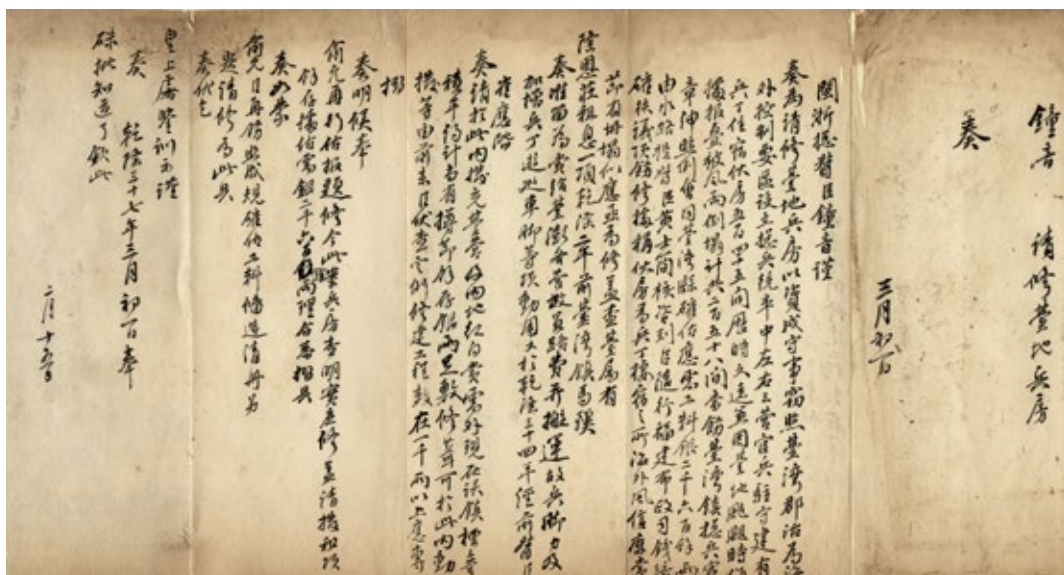 鍾音 請修臺地兵房
三月初一日
奏
閩浙總督臣鍾音謹
奏為請修臺地兵房以資戍守事竊照臺灣郡治為海
外控制要區設立總兵統率中左右三營官兵駐守建有
兵丁住宿伏房五百四十五間歷時久遠兼因臺地颶颱時作
據報盡被風雨倒塌計共二百五十八間當飭臺灣鎮總兵官
章紳照例會同臺灣縣確估應需工料銀二千六百餘兩
由水路提督臣黃士簡核咨到臣隨行福建布政司錢琦
確核議頂飭修據稱伏房為兵丁棲宿之所海外風信靡常
茲有坍塌似應亟為修蓋查臺屬有
隆恩莊租息一項乾隆二年前臺灣鎮馬驥
奏准留為賞給臺澎各營故員路費并搬運故兵腳力及
加增兵丁遊巡車腳等項動用又於乾隆三十四年經前督臣
崔應階
奏請於此內撥充班兵及內地紅白賞需外現在該鎮標每
積年約計尚有撙節餘存銀兩足敷修葺可於此內動
撥等由前來臣伏查定例修建工程數在一千兩以上應專
摺
奏明候奉
俞允再行估報題修今此案兵房查明實應修並請撥租項
餘存撥估需銀二千六百餘兩理合恭摺具
奏如蒙
俞允臣再飭照成規確估工料備造清冊另
題請修為此具
奏伏乞
皇上睿鑒訓示謹
奏 乾隆三十七年三月初一日奉
硃批知道了欽此
二月十五日